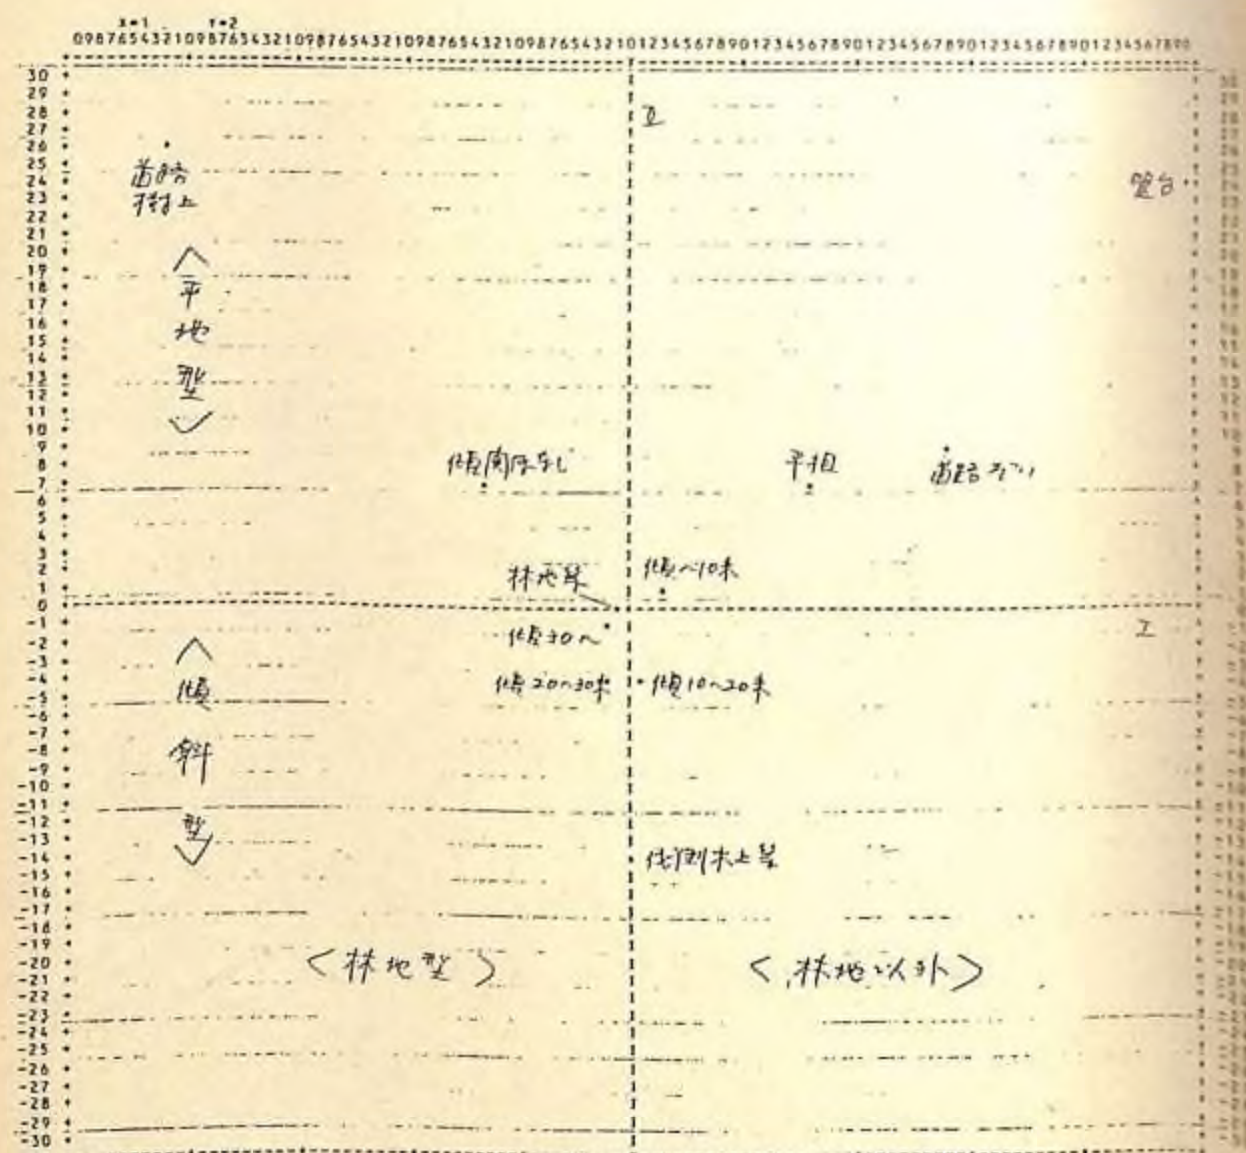 X=1 Y=2
0987654321098765432109876543210987654321098765432101234567890123456789012345678901234567890123456789 0
30
29
28
27
26
25
24
23
22
21
20
19
18
17
16
15
14
13
12
11
10
9
8
7
6
5
4
3
2
1
0
-1
-2
-3
-4
-5
-6
-7
-8
-9
-10
-11
-12
-13
-14
-15
-16
-17
-18
-19
-20
-21
-22
-23
-24
-25
-26
-27
-28
-29
-30
II
道路
樹上
<平地型>
傾関係なし
平坦
道路ぞい
林地縁
傾~10未
I
傾30~
傾20~30未
傾10~20未
<傾斜型>
<林地型>
<林地以外>